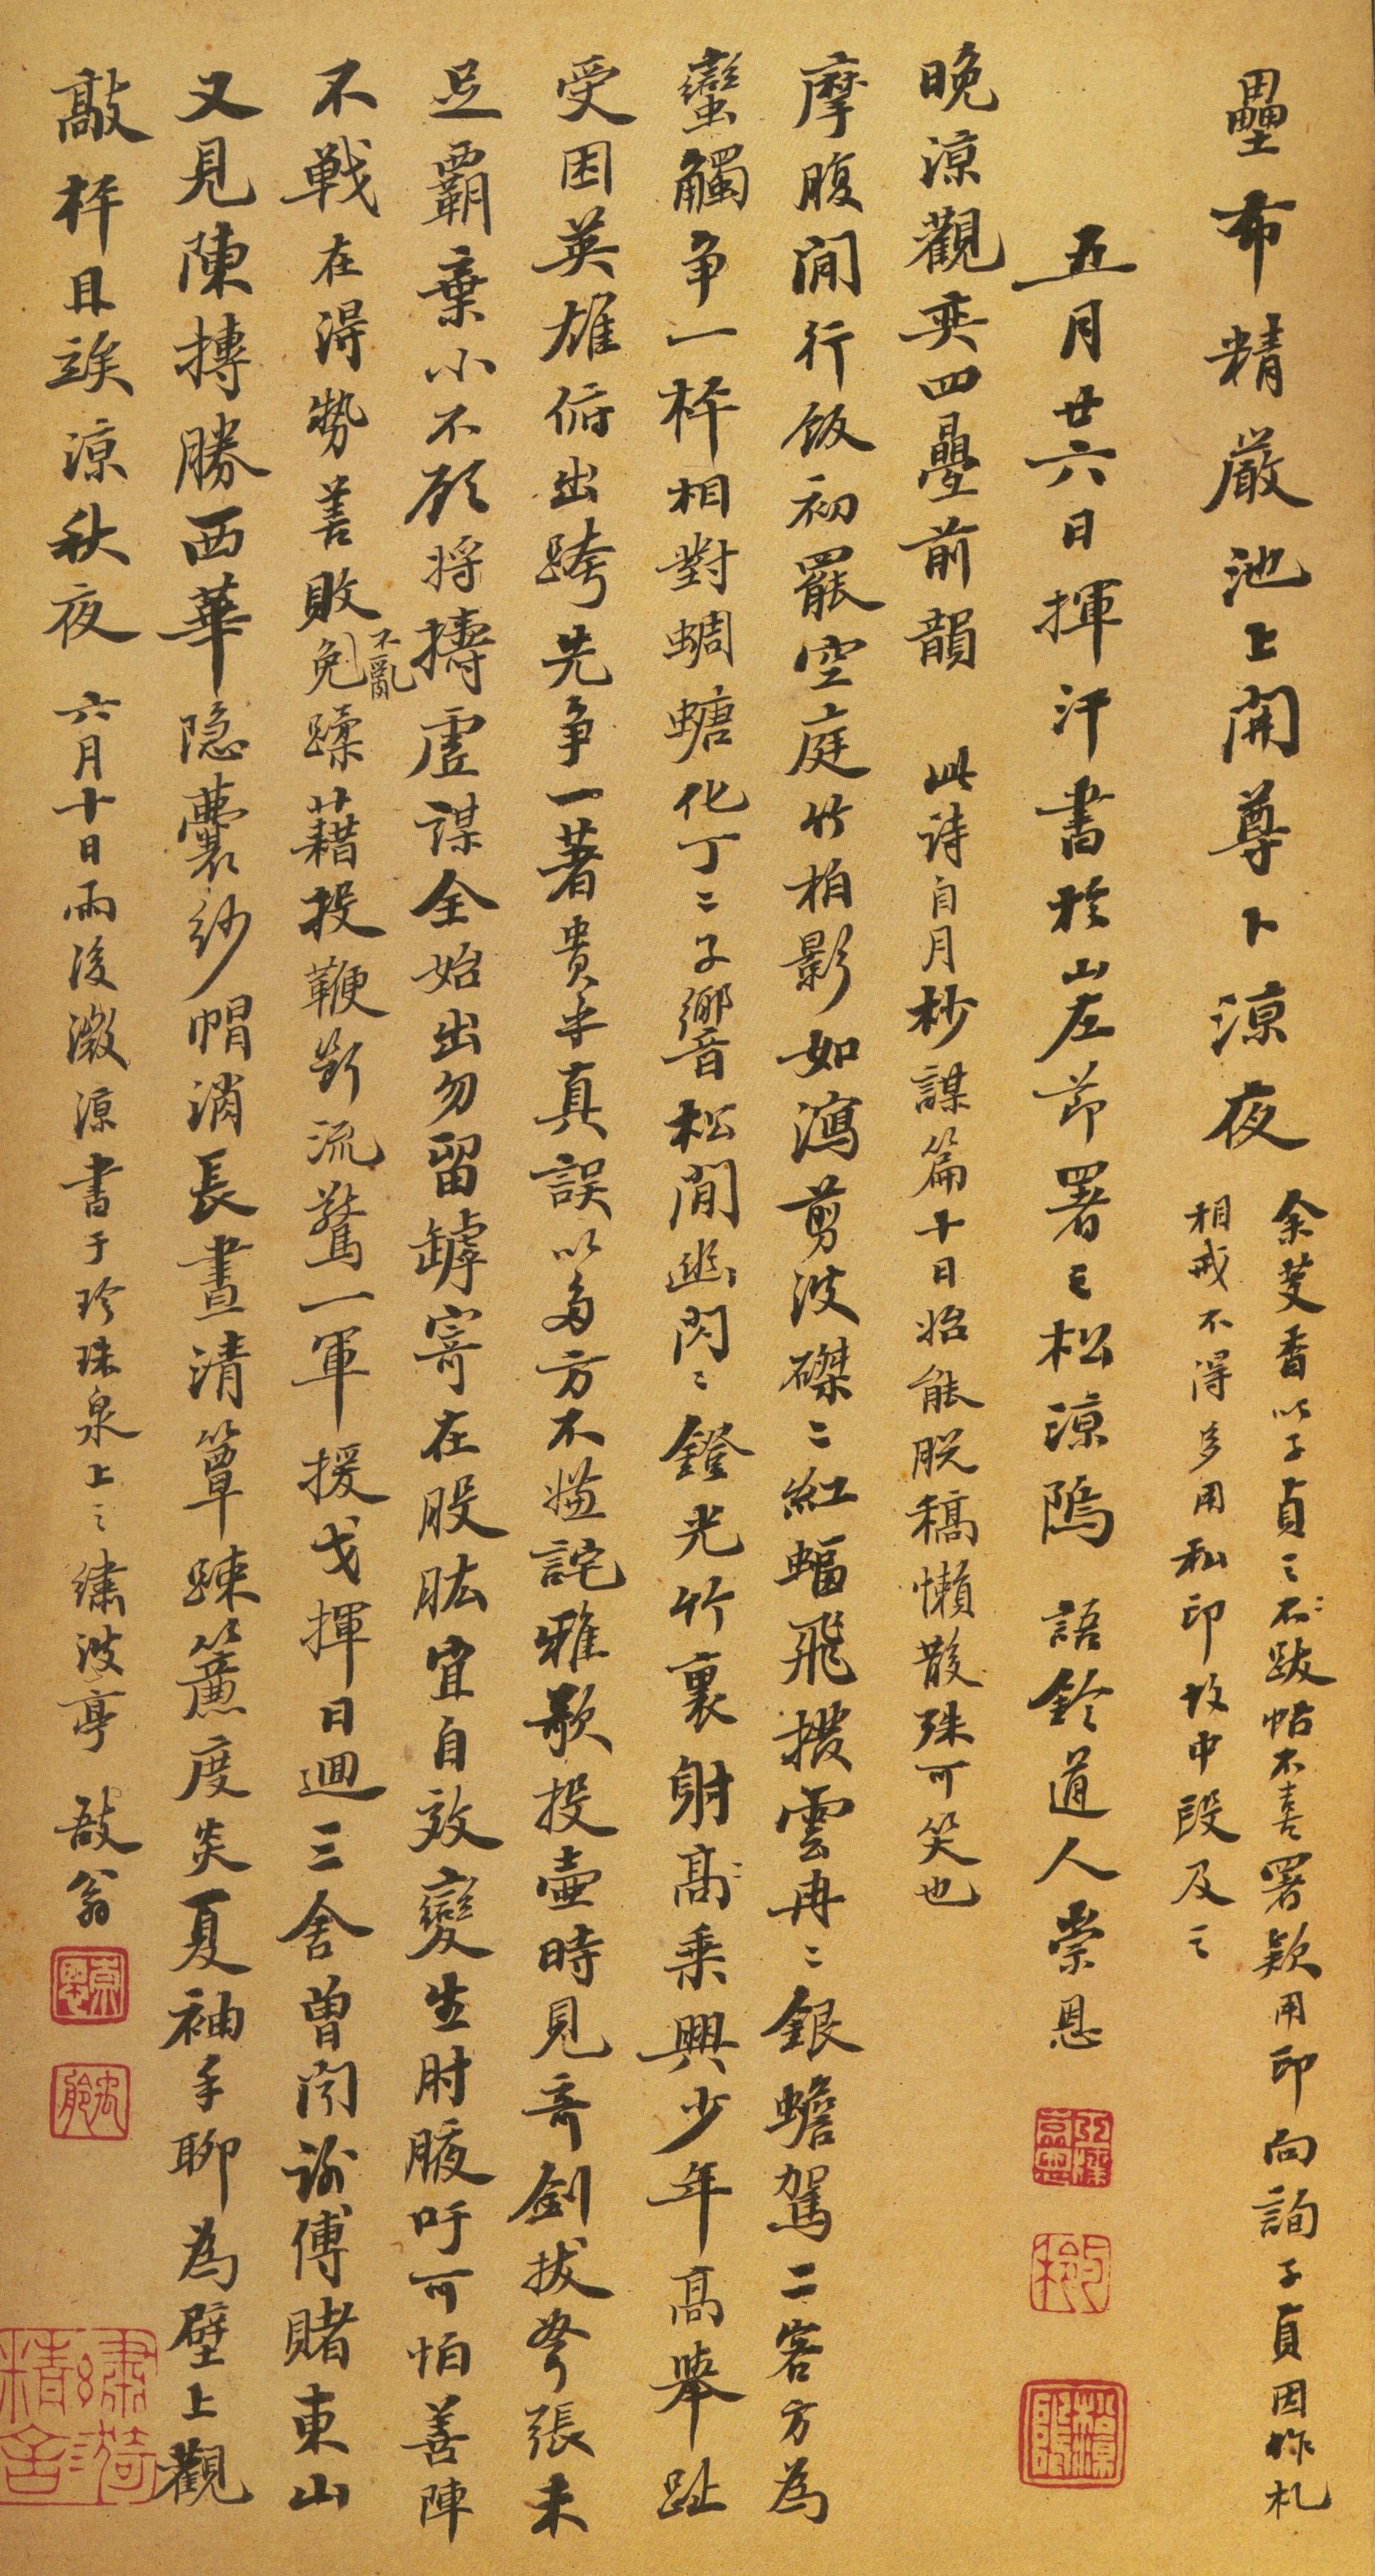 壘布精嚴池上開尊卜涼夜
余芰香以子貞〻不〻跋帖不喜署款用印向詢子貞因作札
相戒不得多用私印故中段及之
五月廿六日揮汗書於山左節署之松涼隖 語鈴道人崇恩
晚涼觀弈四疊前韻 此詩自月杪謀篇十日始能脫稿懶散殊可笑也
摩腹閒行飯初罷空庭竹柏影如瀉剪波磔〻紅蝠飛撥雲冉〻銀蟾駕二客方為
蠻觸爭一枰相對蜩螗化丁〻子響松間幽閃〻鐙光竹裏射高〻乘興少年高舉趾
受困英雄俯出跨先爭一著貴乎真誤以多方不嫌詫雅歌投壺時見奇劍拔弩張未
足霸棄小不顧將擣虛謀全始出勿留罅寄在股肱宜自效變生肘腋吁可怕善陣
不戰在得勢善敗不亂免蹂藉投鞭斷流驚一軍援戈揮日迴三舍曾聞謝傅賭東山
又見陳摶勝西華隱囊紗帽消長晝清簟疎簾度炎夏袖手聊為壁上觀
敲枰且竢涼秋夜 六月十日雨後澂涼書于珍珠泉上之繡波亭 敔翁
崇恩
松涼隖
繡漪精舍